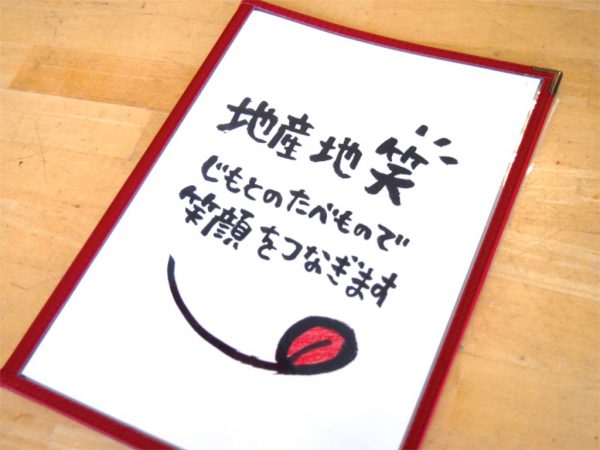 地産地笑
じもとのたべもので
笑顔をつなぎます